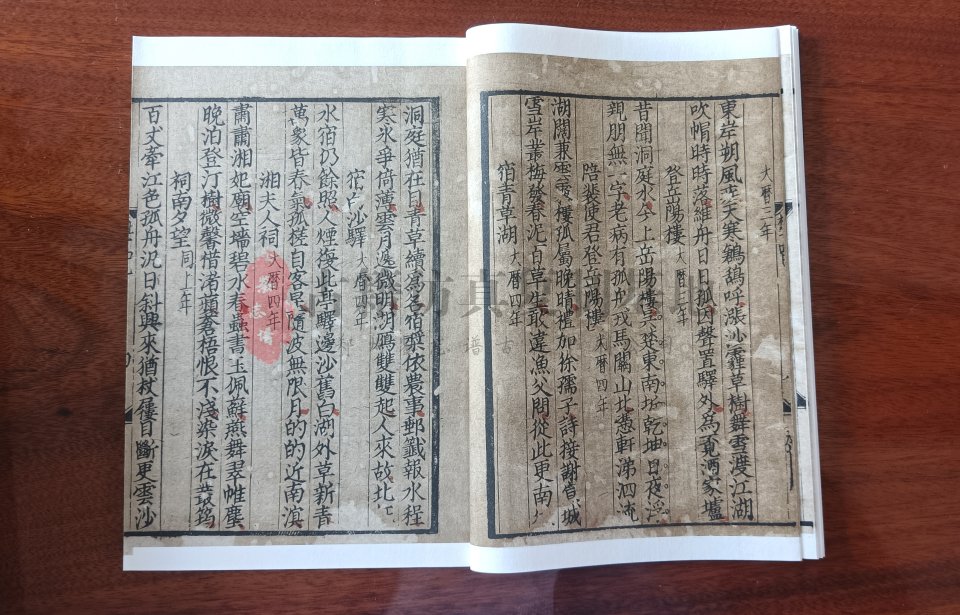 大暦三年
東岸朔風疾天寒鶬鴰呼漲沙霾草樹舞雪渡江湖
吹帽時時落維舟日日孤因聲置驛外為覓酒家壚
登岳陽樓 大暦三年
昔聞洞庭水今上岳陽樓吳楚東南坼乾坤日夜浮
親朋無一字老病有孤舟戎馬關山北憑軒涕泗流
陪裴使君登岳陽樓 大暦四年
湖闊兼雲霧樓孤屬晚晴禮加徐孺子詩接謝宣城
雪岸叢梅發春泥百草生敢違漁父問從此更南
宿青草湖 大暦四年
洞庭猶在目青草續為名宿槳依農事郵籤報水程
寒冰爭倚薄雲月遞微明湖鴈雙雙起人來故北
宿白沙驛 大暦四年
水宿仍餘照人煙復此亭驛邊沙舊白湖外草新青
萬象皆春氣孤槎自客星隨波無限月的的近南溟
湘夫人祠 大暦四年
肅肅湘妃廟空墻碧水春蟲書玉佩蘚燕舞翠帷塵
晚泊登汀樹微馨借渚蘋蒼梧恨不淺染淚在叢筠
祠南夕望 同上年
百丈牽江色孤舟泛日斜興來猶杖屨目斷更雲沙